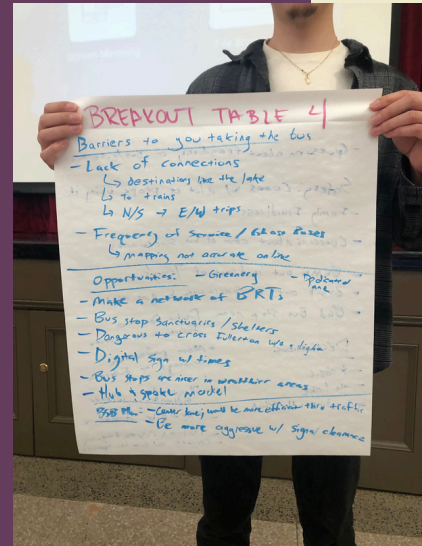 BREAKOUT TABLE 4
Barriers to you taking the bus
- Lack of connections
↳ destinations like the lake
↳ To trains
↳ N/S → E/W trips
- Frequency of Service / Ghost Buses
↳ mapping not accurate online
Opportunities: - Greenery - Dedicated lane
- Make a network of BRTs
- Bus stop Sanctuaries / Shelters
- Dangerous to cross Fullerton w/o a light
- Digital sign w/ times
- Bus stops are nicer in wealthier areas
- Hub & spoke model
- Center lane; would be more efficient thru traffic
- Be more aggressive w/ signal clearance